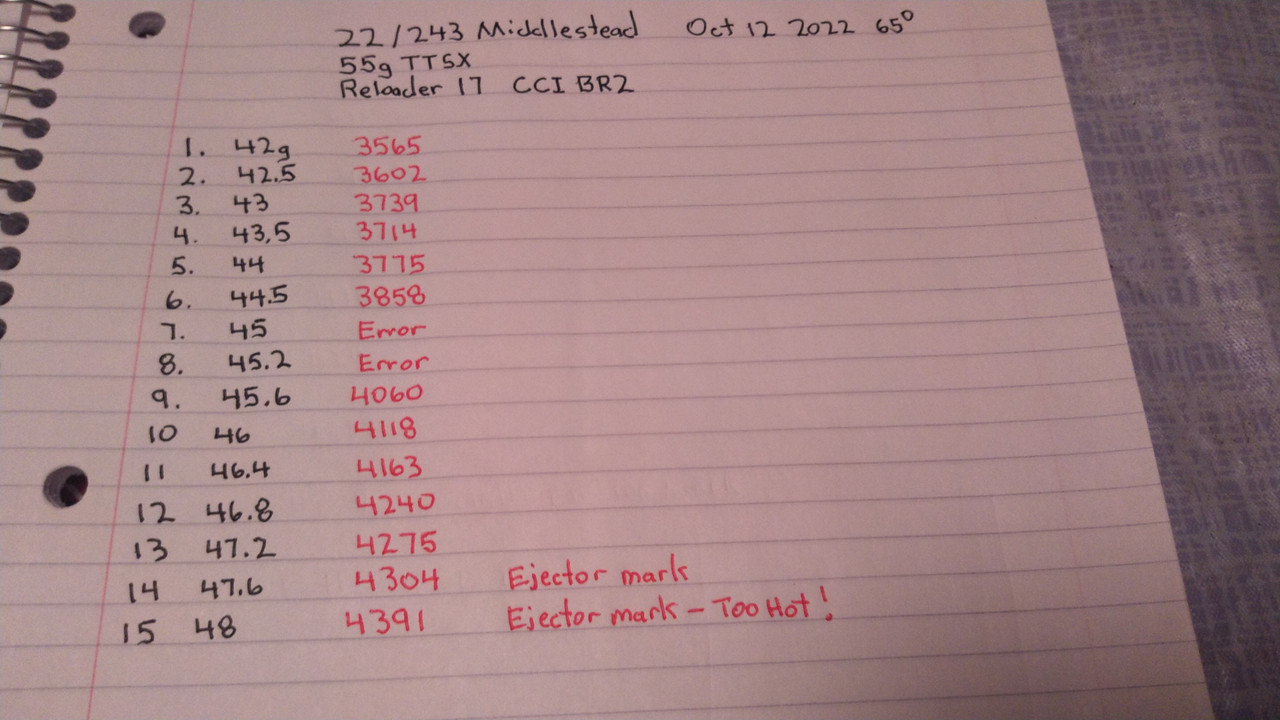 22/243 Middlestead Oct 12 2022 65°
55g TTSX
Reloader 17 CCI BR2
1. 42g 3565
2. 42.5 3602
3. 43 3739
4. 43.5 3714
5. 44 3775
6. 44.5 3858
7. 45 Error
8. 45.2 Error
9. 45.6 4060
10 46 4118
11 46.4 4163
12 46.8 4240
13 47.2 4275
14 47.6 4304 Ejector mark
15 48 4391 Ejector mark - Too Hot!